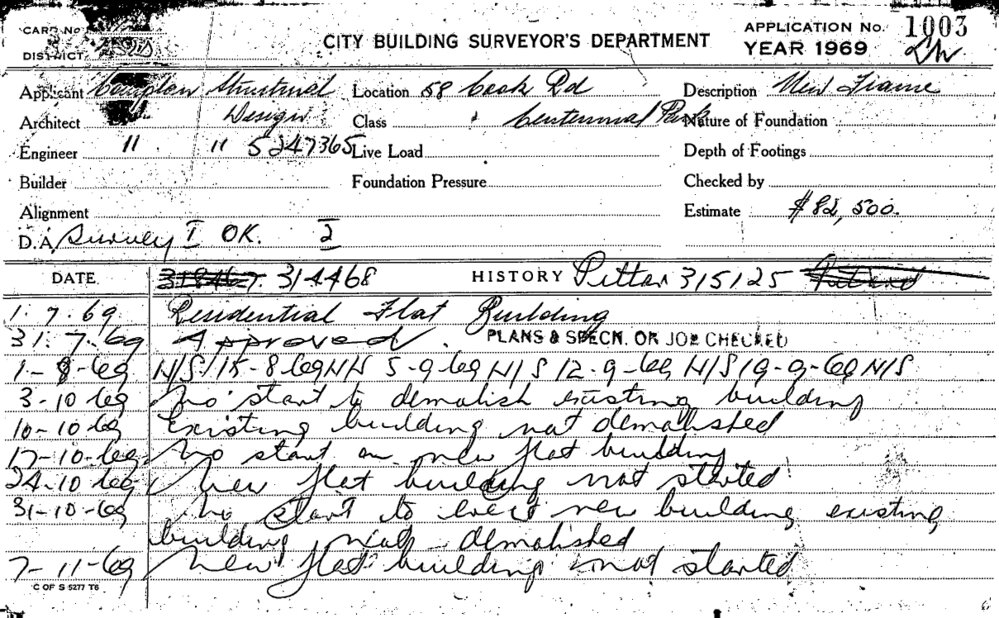 CARD No
DISTRICT
CITY BUILDING SURVEYOR'S DEPARTMENT
APPLICATION No. 1003
YEAR 1969
Applicant Compton Structural Location 58 Cook Rd Description New Frame
Architect Design Class Centennial Park Nature of Foundation
Engineer " " 5247365 Live Load Depth of Footings
Builder Foundation Pressure Checked by
Alignment Estimate $82,500.
D.A. Survey I OK. 2
DATE 314468 HISTORY 315125
1.7.69 Residential Flat Building
31.7.69 Approved. PLANS & SPECN. OK JOB CHECKED
1-8-69 N/S 15-8-69 N/S 5-9-69 N/S 12-9-69 N/S 19-9-69 N/S
3-10-69 No start to demolish existing building
10-10-69 Existing building not demolished
17-10-69 No start on new flat building
24-10-69 New flat building not started
31-10-69 No start to erect new building existing
building not demolished
7-11-69 New flat building not started
C OF S 5277 T6